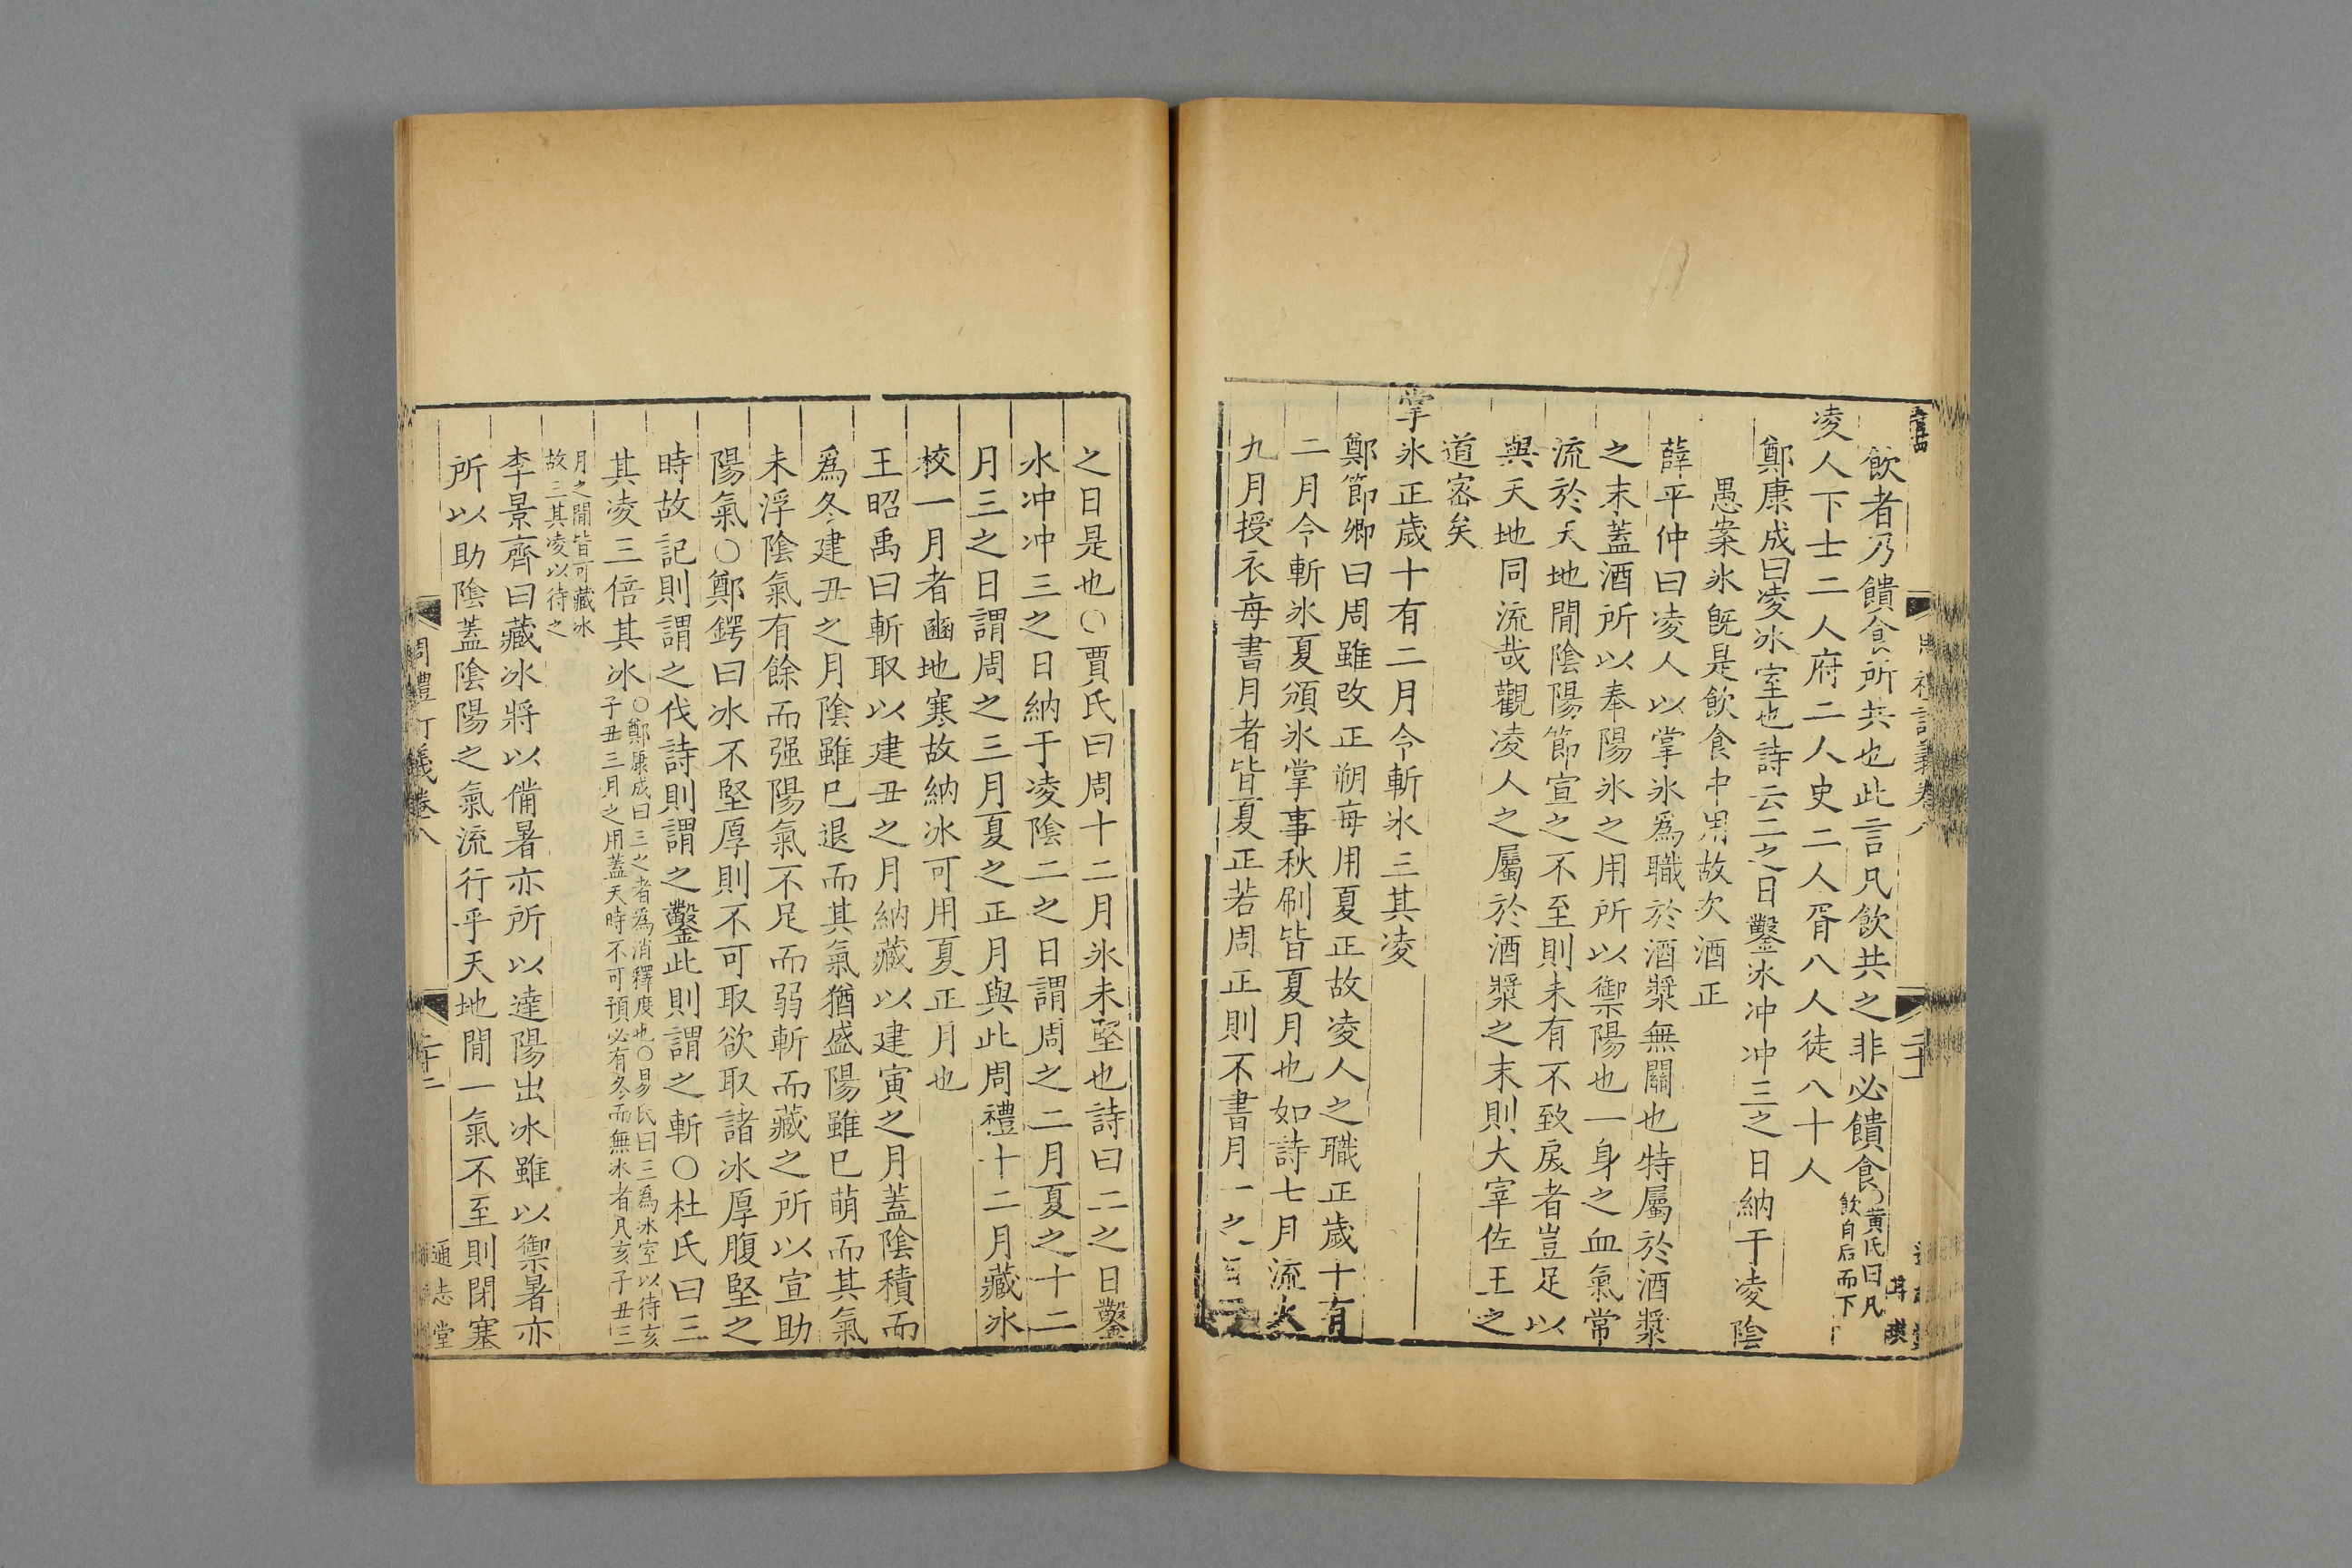 飲者乃饋食所共也此言凡飲共之非必饋食〇黄氏曰凡飲自后而下
凌人下士二人府二人史二人胥八人徒八十人
鄭康成曰凌冰室也詩云二之日鑿冰冲冲三之日納于凌陰
愚案氷旣是飲食中用故次酒正
薛平仲曰凌人以掌氷爲職於酒漿無關也特屬於酒漿
之末蓋酒所以奉陽氷之用所以禦陽也一身之血氣常
流於天地閒陰陽節宣之不至則未有不致戾者豈足以
與天地同流哉觀凌人之屬於酒漿之末則大宰佐王之
道宻矣
掌氷正歲十有二月令斬氷三其凌
鄭節卿曰周雖改正朔每用夏正故凌人之職正歲十有
二月令斬氷夏頒氷掌事秋刷皆夏月也如詩七月流火
九月授衣每書月者皆夏正若周正則不書月一之日二
之日是也〇賈氏曰周十二月氷未堅也詩曰二之日鑿
氷冲冲三之日納于凌陰二之日謂周之二月夏之十二
月三之日謂周之三月夏之正月與此周禮十二月藏氷
校一月者豳地寒故納冰可用夏正月也
王昭禹曰斬取以建丑之月納藏以建寅之月蓋陰積而
爲冬建丑之月陰雖已退而其氣猶盛陽雖已萌而其氣
未浮陰氣有餘而强陽氣不足而弱斬而藏之所以宣助
陽氣〇鄭鍔曰冰不堅厚則不可取欲取諸冰厚腹堅之
時故記則謂之伐詩則謂之鑿此則謂之斬〇杜氏曰三
其凌三倍其冰〇鄭康成曰三之者爲消釋度也〇易氏曰三爲冰室以待亥子丑三月之用蓋天時不可預必有冬而無冰者凡亥子丑三
月之閒皆可藏冰故三其凌以待之
李景齊曰藏冰將以備暑亦所以達陽出冰雖以禦暑亦
所以助陰蓋陰陽之氣流行乎天地閒一氣不至則閉塞
周禮訂義卷八
二十二
通志堂